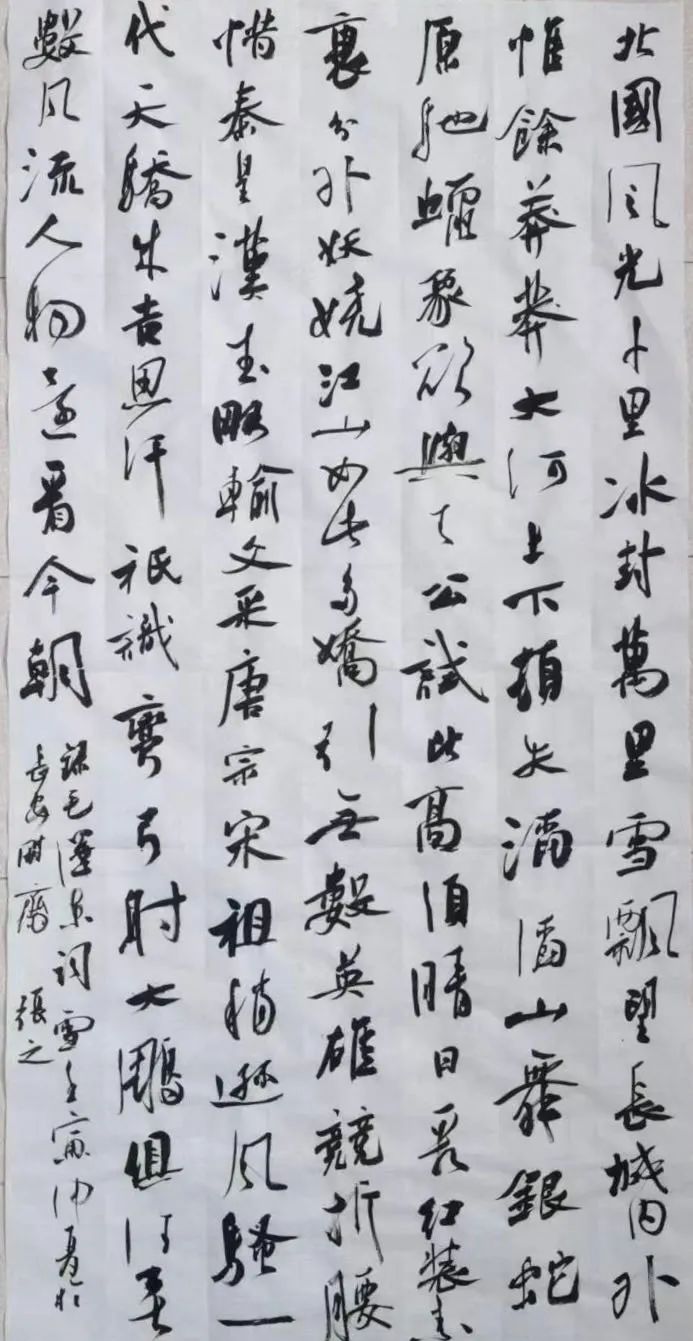 北國風光千里冰封萬里雪飄望長城内外
惟餘莽莽大河上下頓失滔滔山舞銀蛇
原馳蠟象欲與天公試比高須晴日看紅裝素
裹分外妖嬈江山如此多嬌引無數英雄競折腰
惜秦皇漢武略輸文采唐宗宋祖稍遜風騷一
代天驕成吉思汗祇識彎弓射大鵰俱往矣
數風流人物還看今朝
錄毛澤東詞雪壬寅仲夏於
長安齋 張之